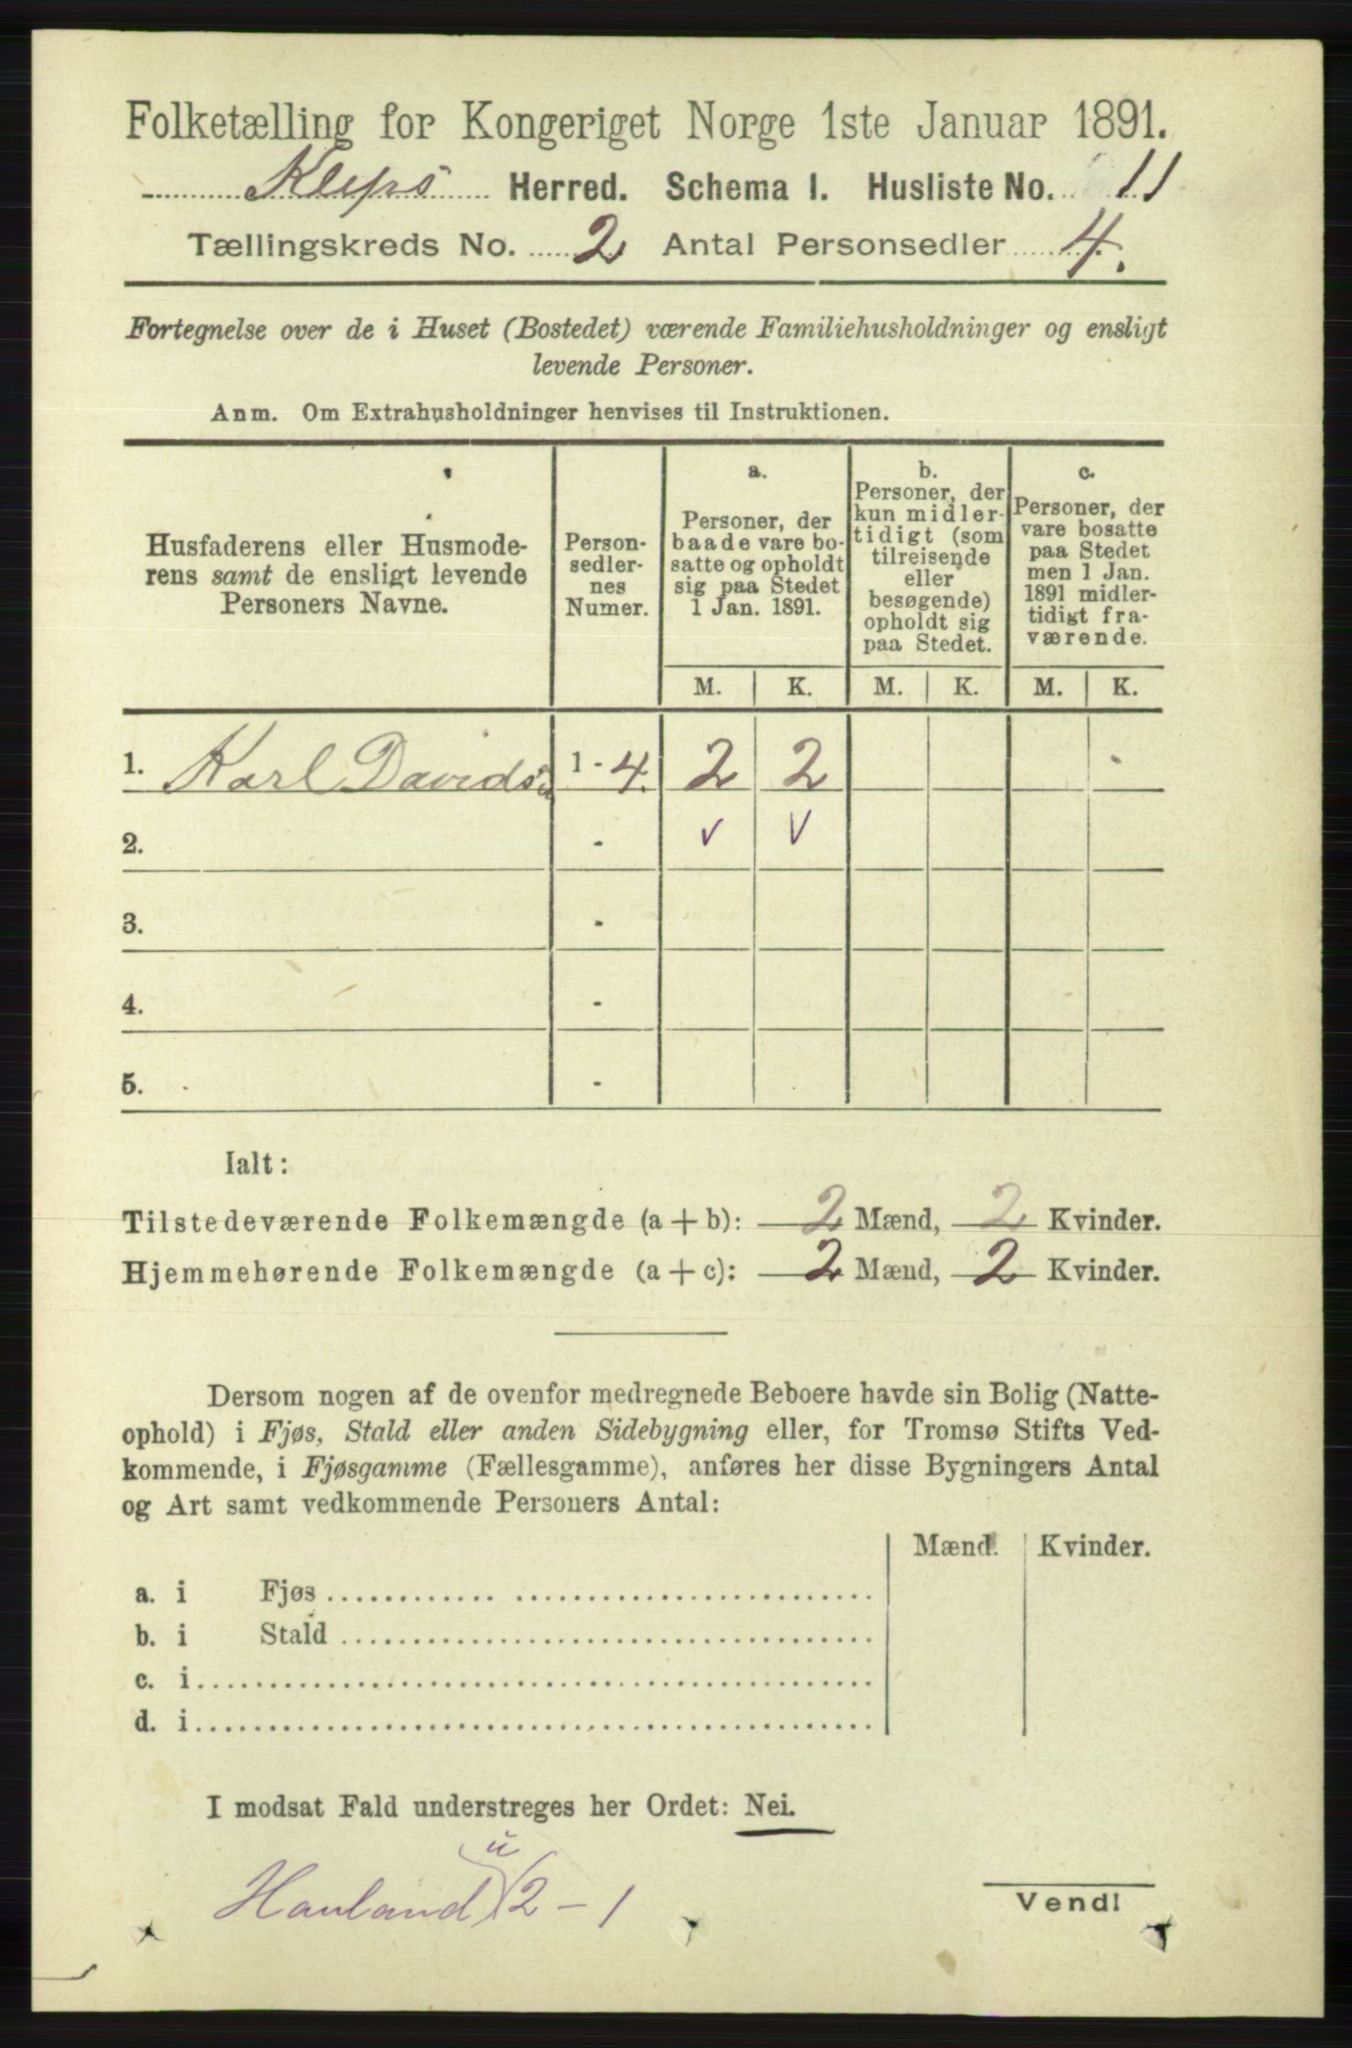 Folketælling for Kongeriget Norge 1ste Januar 1891.
Kleps Herred. Schema I. Husliste No. 11
Tællingskreds No. 2 Antal Personsedler 4.
Fortegnelse over de i Huset (Bostedet) værende Familiehusholdninger og ensligt
levende Personer.
Anm. Om Extrahusholdninger henvises til Instruktionen.
Husfaderens eller Husmode-
rens samt de ensligt levende
Personers Navne.
Person-
sedler-
nes
Numer.
a.
Personer, der
baade vare bo-
satte og opholdt
sig paa Stedet
1 Jan. 1891.
b.
Personer, der
kun midler-
tidigt (som
tilreisende
eller
besøgende)
opholdt sig
paa Stedet.
c.
Personer, der
vare bosatte
paa Stedet
men 1 Jan.
1891 midler-
tidigt fra-
værende.
M. K. M. K. M. K.
1. Karl Davidsen 1 - 4. 2 2
2. - v v
3. -
4. -
5. -
Ialt:
Tilstedeværende Folkemængde (a + b): 2 Mænd, 2 Kvinder.
Hjemmehørende Folkemængde (a + c): 2 Mænd, 2 Kvinder.
Dersom nogen af de ovenfor medregnede Beboere havde sin Bolig (Natte-
ophold) i Fjøs, Stald eller anden Sidebygning eller, for Tromsø Stifts Ved-
kommende, i Fjøsgamme (Fællesgamme), anføres her disse Bygningers Antal
og Art samt vedkommende Personers Antal:
Mænd. Kvinder.
a. i Fjøs
b. i Stald
c. i
d. i
I modsat Fald understreges her Ordet: Nei.
u
Hauland 2 - 1
Vend!